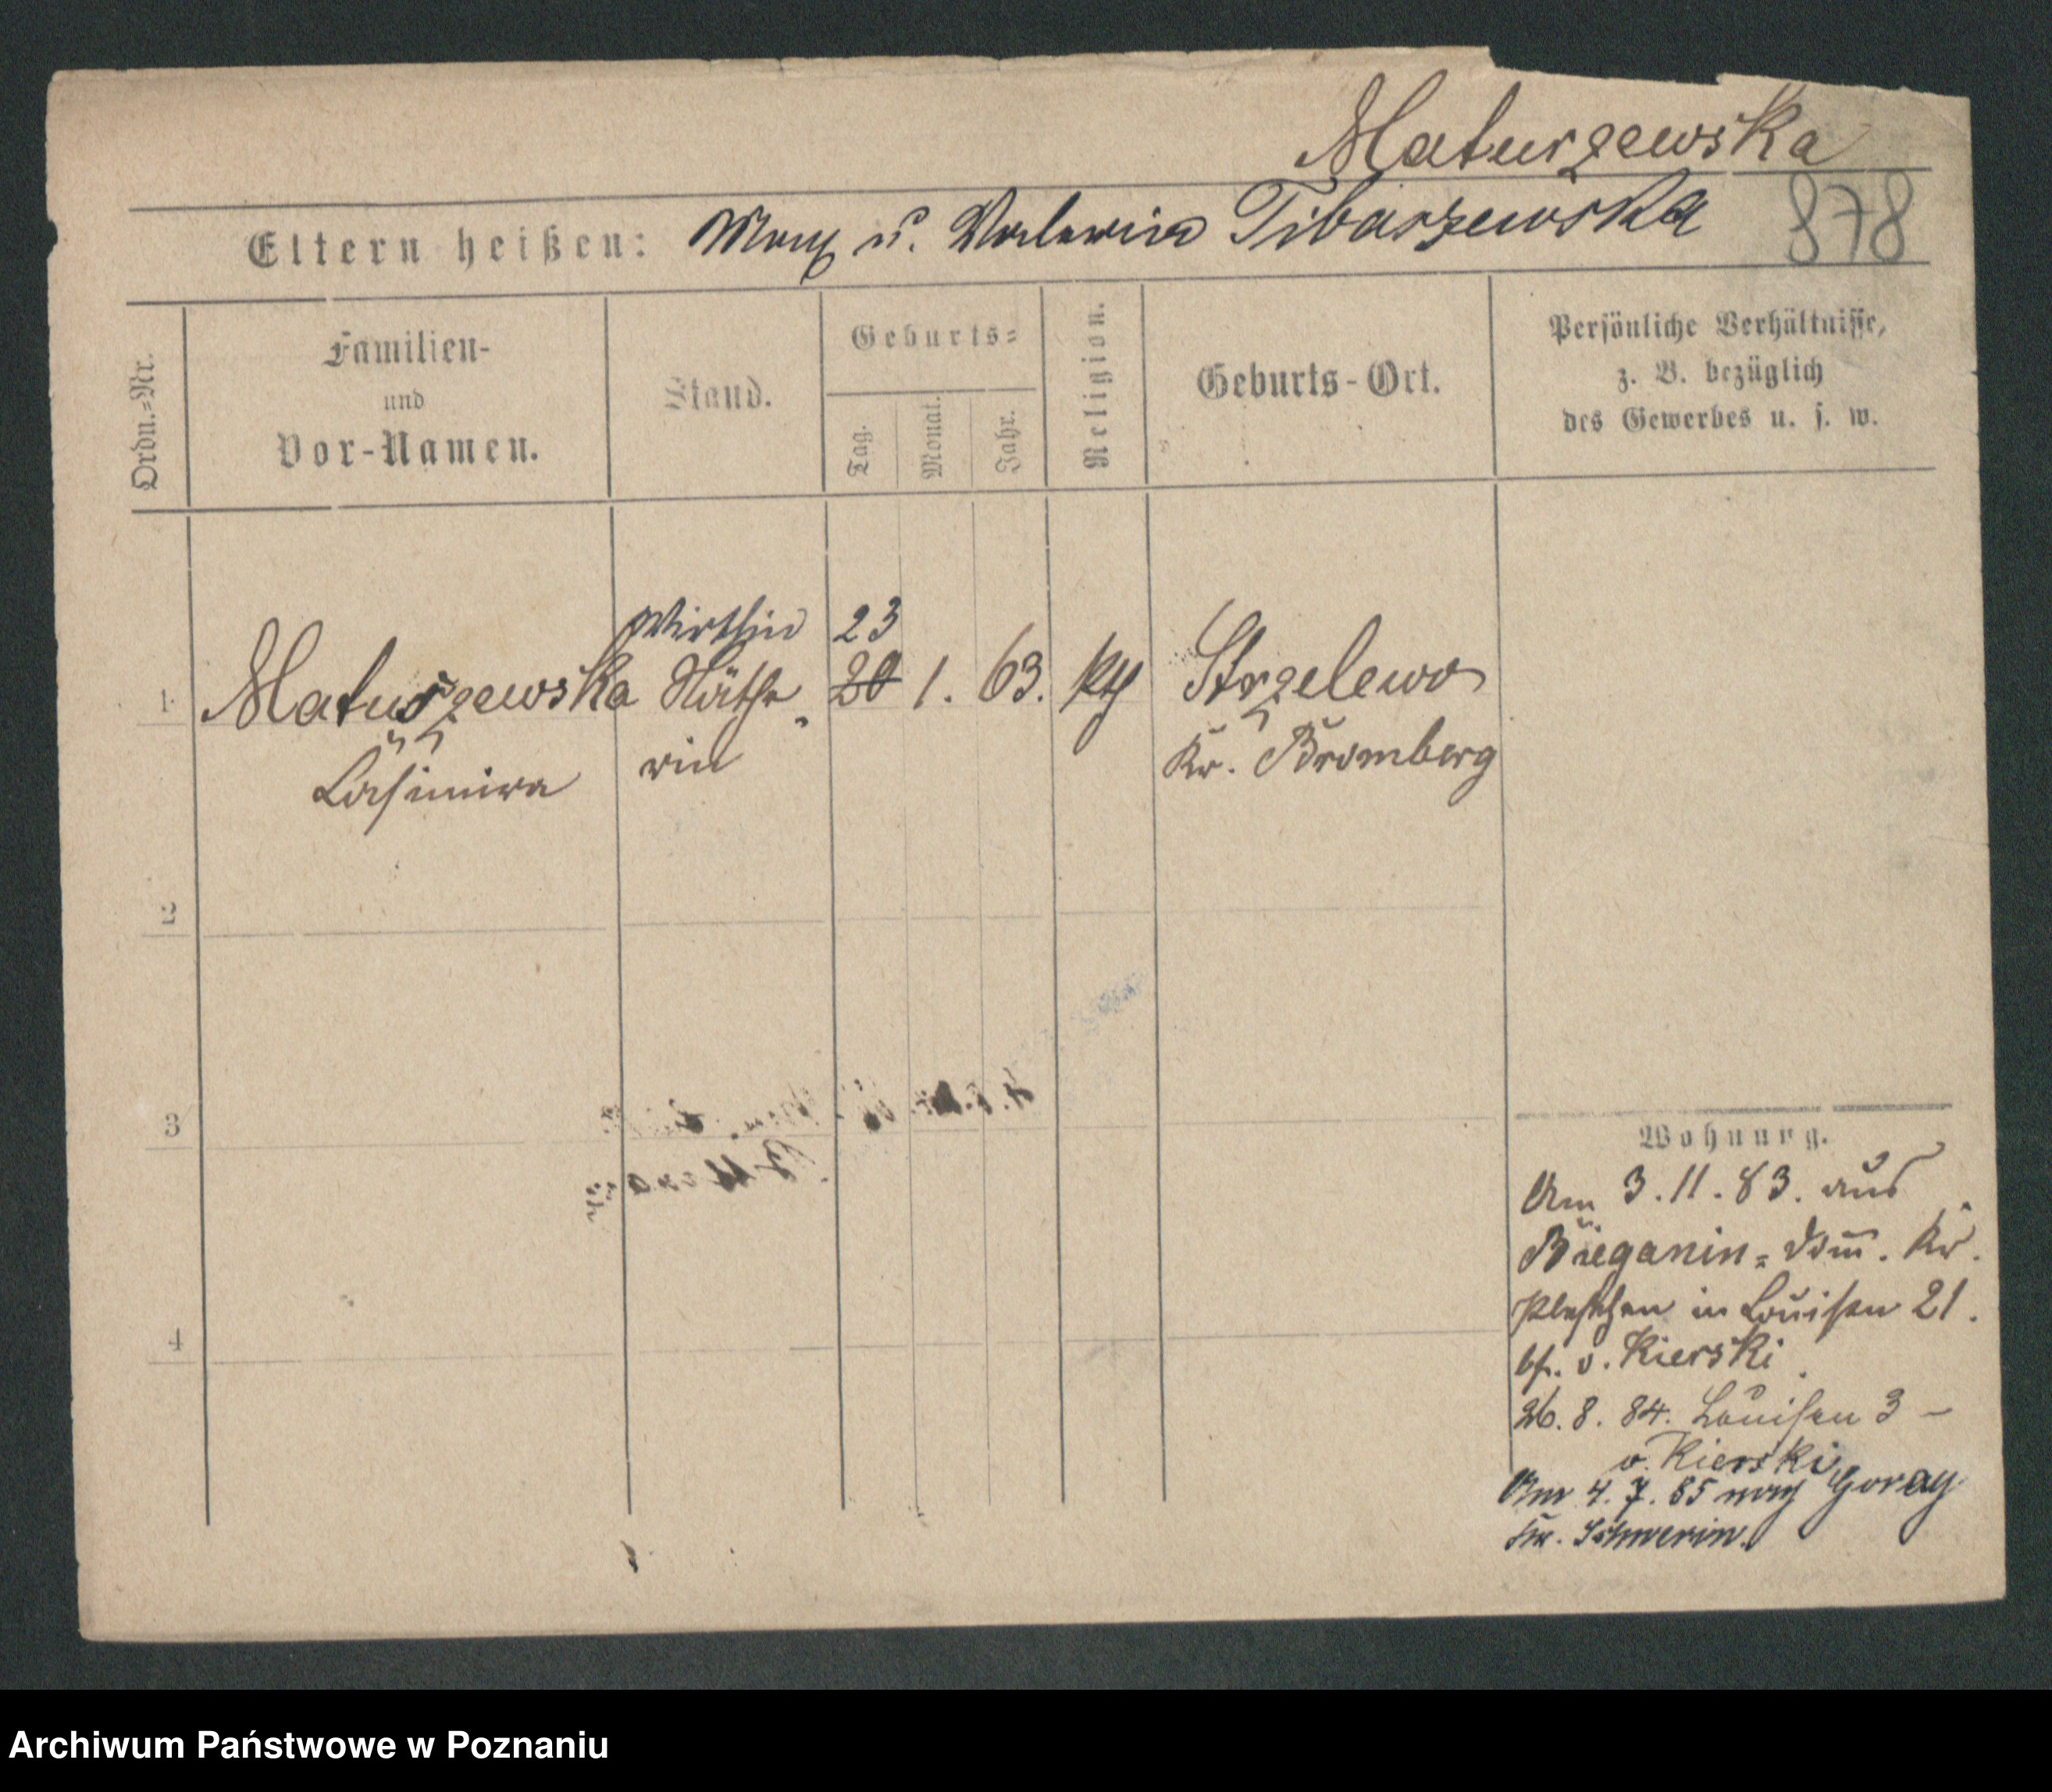 Maturzewska
Eltern heißen: Max u. Valeria Tibaszewska 878
Ordn.-Nr.
Familien-
und
Vor-Namen.
Stand.
Geburts-
Tag. Monat. Jahr.
Religion.
Geburts-Ort.
Persönliche Verhältnisse,
z. B. bezüglich
des Gewerbes u. s. w.
Wirthin 23
1 Maturzewska Näthe 20 1. 63. kth Strzelewo
Casimira rin Kr. Bromberg
2
3
4
Wohnung.
Am 3.11.83. aus
Bieganin-Dom. Kr.
Pleschen in Louisen 21.
bh. v. Kierski
26. 8. 84. Louisen 3 –
v. Kierski
Am 4. 7. 85 nach Goray
Kr. Schwerin.
Archiwum Państwowe w Poznaniu